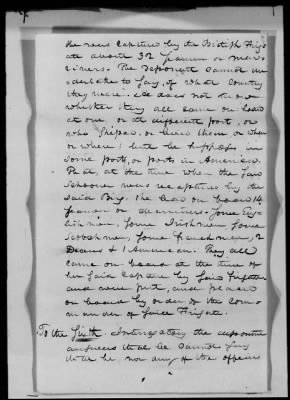 she was captured by the British Frig-
ate about 32 seamen or mari-
riners. The deponent cannot un-
dertake to say, of what Country
they were. He does not know
whether they all came on board
at one, or at different ports, or
who shiped or hired them or when
or where; but he supposes in
some port, or ports in America.
That, at the time when the said
Schooner was recaptured by the
said Brig. She had on board 14
seamen or mariners. Some Eng-
lishmen, Some Irishmen Some
Scotchmen, Some frenchmen, 2
Deanes & 1 American. They all
came on board at the time of
her said Capture by said frigate
and were put, and placed
on board by order of the Com-
mander of said Frigate.
To the Sixth Interrogatory the deponent
answereth that he cannot say
that he nor any of the officers